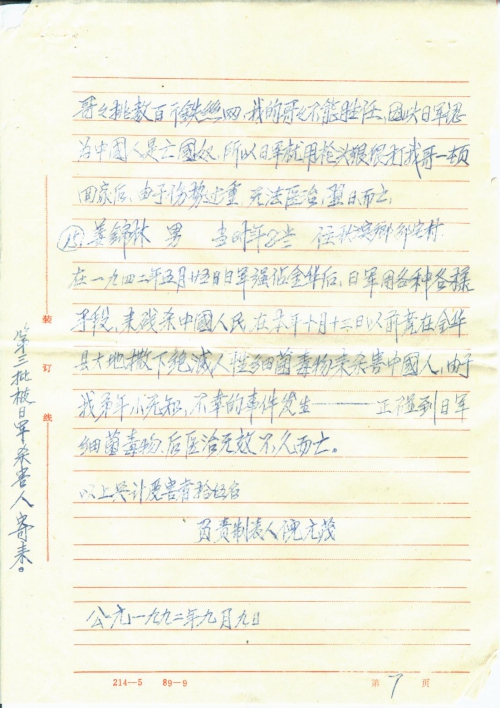 哥又挑数百斤铁丝网,我的哥又不能胜任,因此日军認
为中國人是亡國奴,所以日军就用枪头狠狠打我哥一顿
回家后,由于伤势过重,无法医治,翌日而亡,
⑮,姜錦林 男 当时年 住秋滨鄉
在一九四二年五月廿五日日军强佔金华后,日军用各种各様
手段,来残杀中國人民,在本年十月十三日以前竟在金华
县土地撒下绝滅人性細菌毒物来杀害中國人,由于
我弟年小无知,不幸的事件发生———正碰到日军
細菌毒物,后医治无效不久而亡。
以上共计受害者拾伍名
负责制表人倪
公元一九九二年九月九日
装订线
第三批被日军杀害人寄来。
214—5 89—9
第 7 页